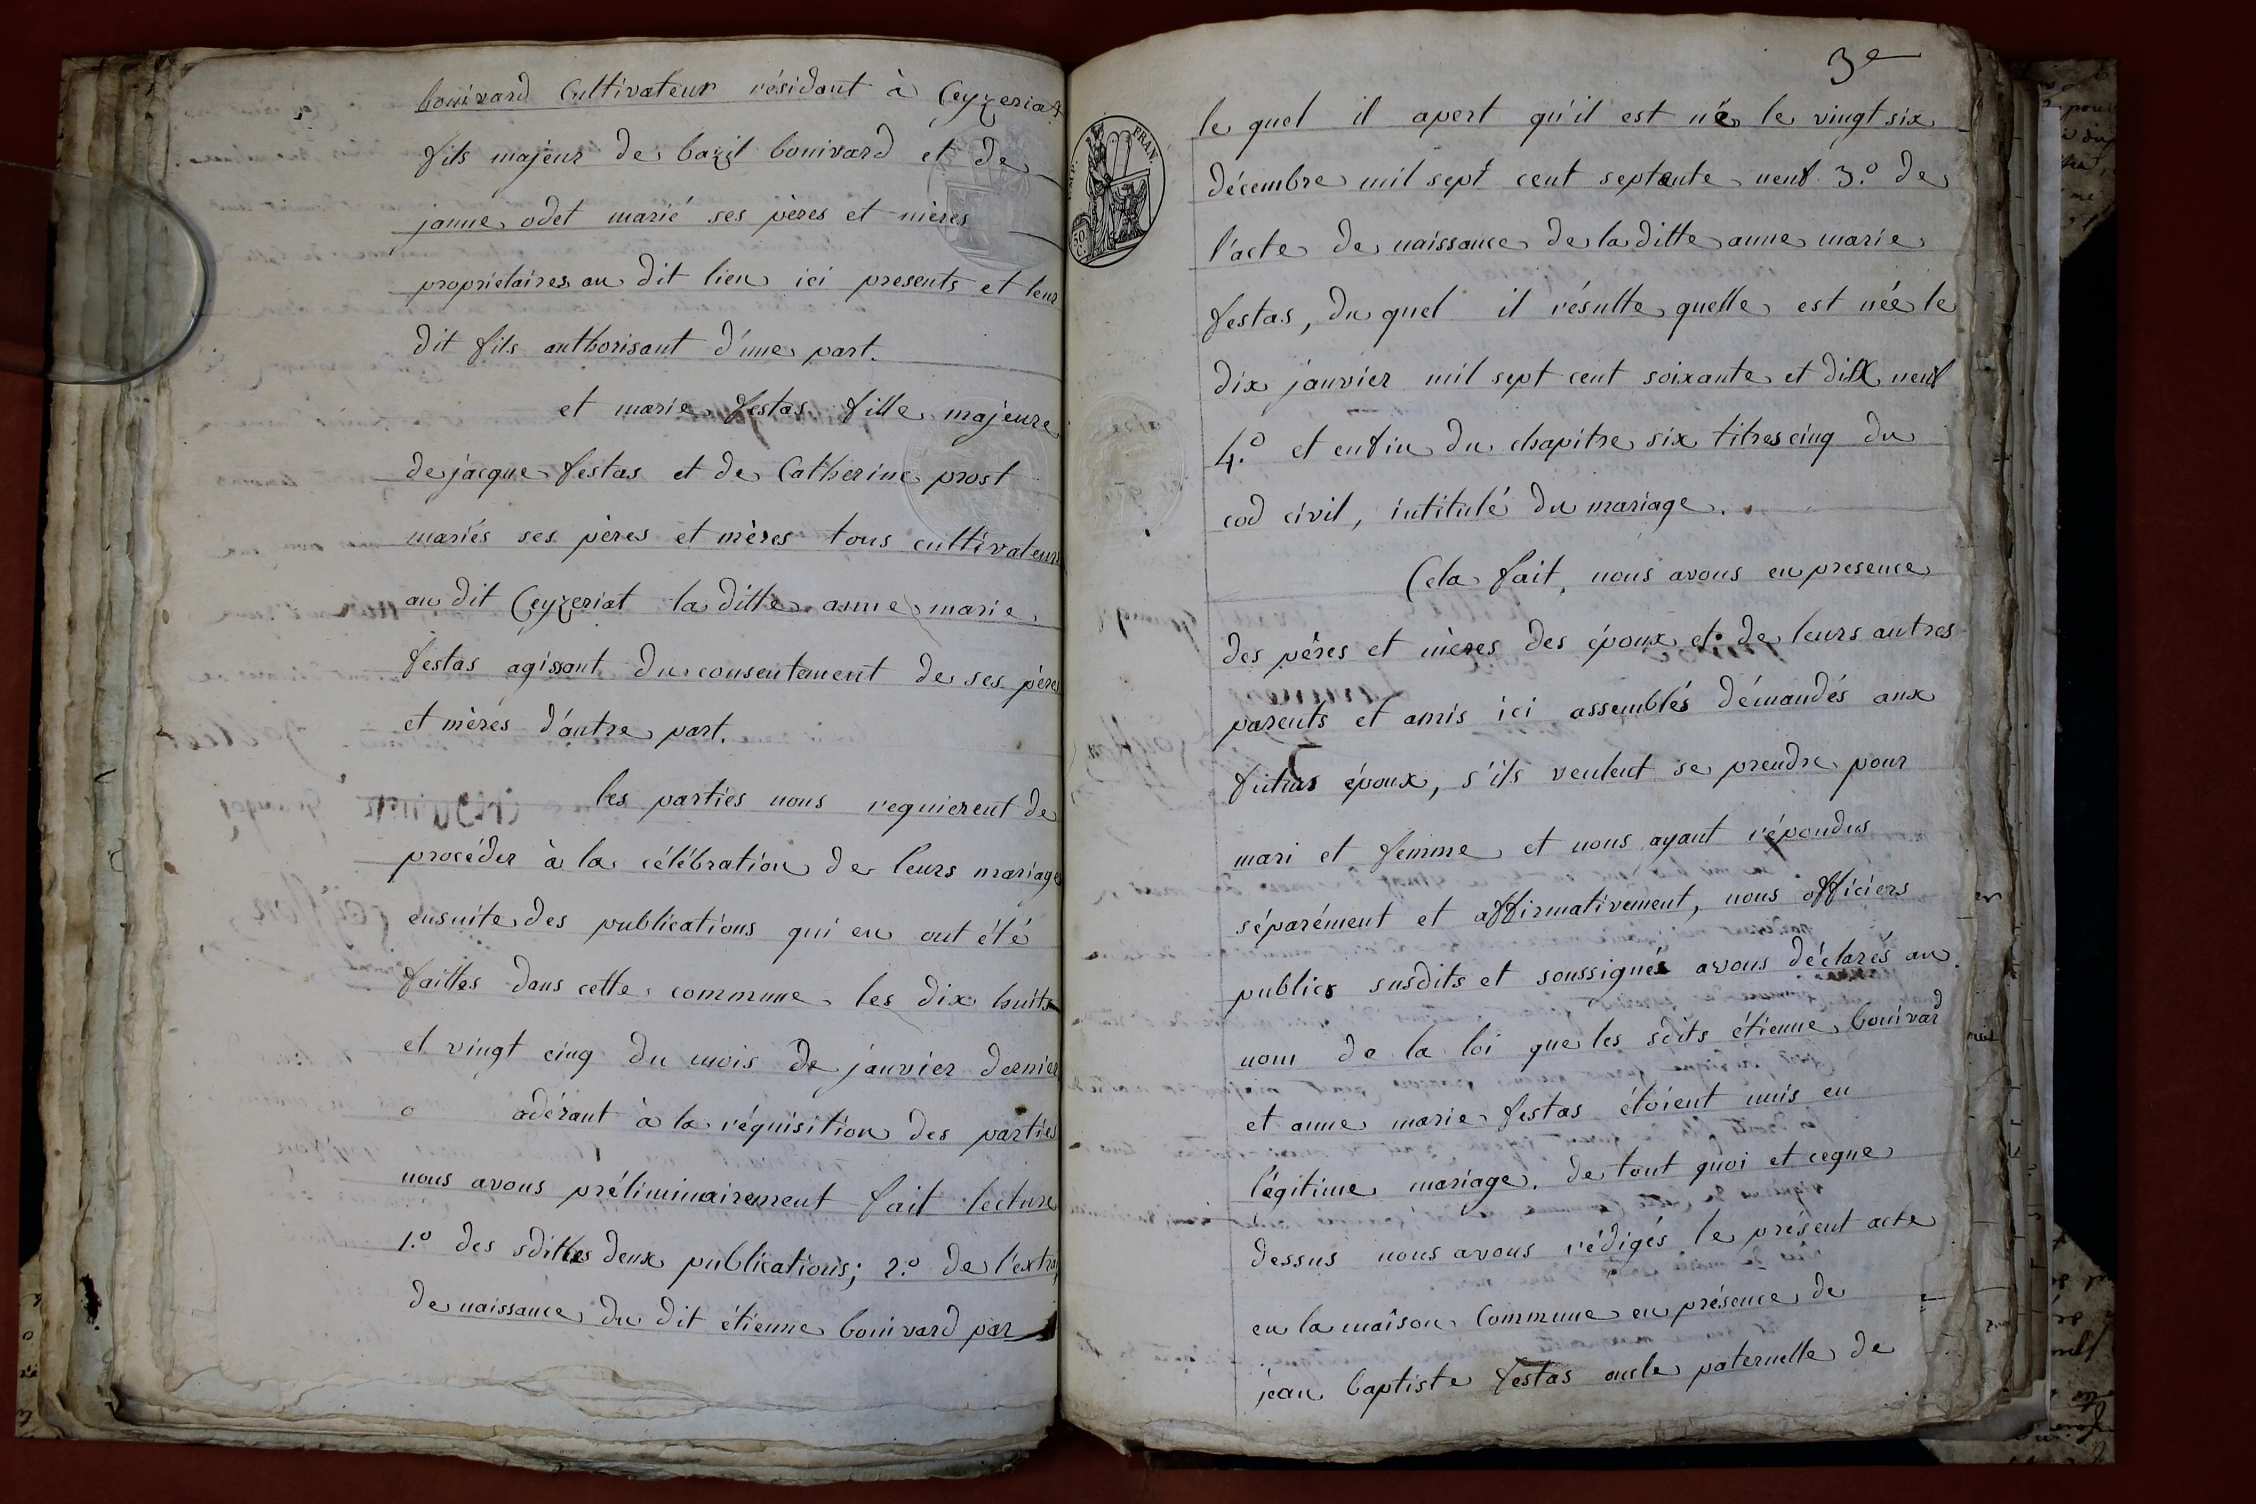 bonivard Cultivateur résidant à Ceyzeriat
fils majeur de bazil bonivard et de
janne odet marié ses pères et mères
propriétaires au dit lieu ici presents et leur
dit fils authorisant d'une part.
et marie festas fille majeure
de jacque festas et de Catherine prost
mariés ses pères et mères tous cultivateurs
au dit Ceyzeriat la ditte anne marie
festas agissant du consentement de ses pères
et mères d'autre part.
les parties nous requierent de
procéder à la célébration de leurs mariage
ensuite des publications qui en ont été
faittes dans cette commune les dix huits
et vingt cinq du mois de janvier dernier
adérant à la réquisition des parties
nous avons préliminairement fait lecture
1.º des sdittes deux publications; 2.º de l'extrai
de naissance du dit étienne bonivard par
3e
IMP. FRAN.
50 C.
le quel il apert qu'il est né le vingt six
décembre mil sept cent septente neuf 3.º de
l'acte de naissance de la ditte anne marie
festas, du quel il résulte quelle est née le
dix janvier mil sept cent soixante et dix neuf
4.º et enfin du chapitre six titres cinq du
cod civil, intitulé du mariage.
Cela fait, nous avons en presence
des pères et mères des époux et de leurs autres
parents et amis ici assemblés démandés aux
futurs époux, s'ils veulent se prendre pour
mari et femme et nous ayant répondus
séparément et affirmativement, nous officiers
publics susdits et soussignés avons déclarés au
nom de la loi que les sdits étienne bonivard
et anne marie festas étoient unis en
légitime mariage. de tout quoi et ceque
dessus nous avons rédigés le présent acte
en la maîson Commune en présence de
jean baptiste festas oncle paternelle de